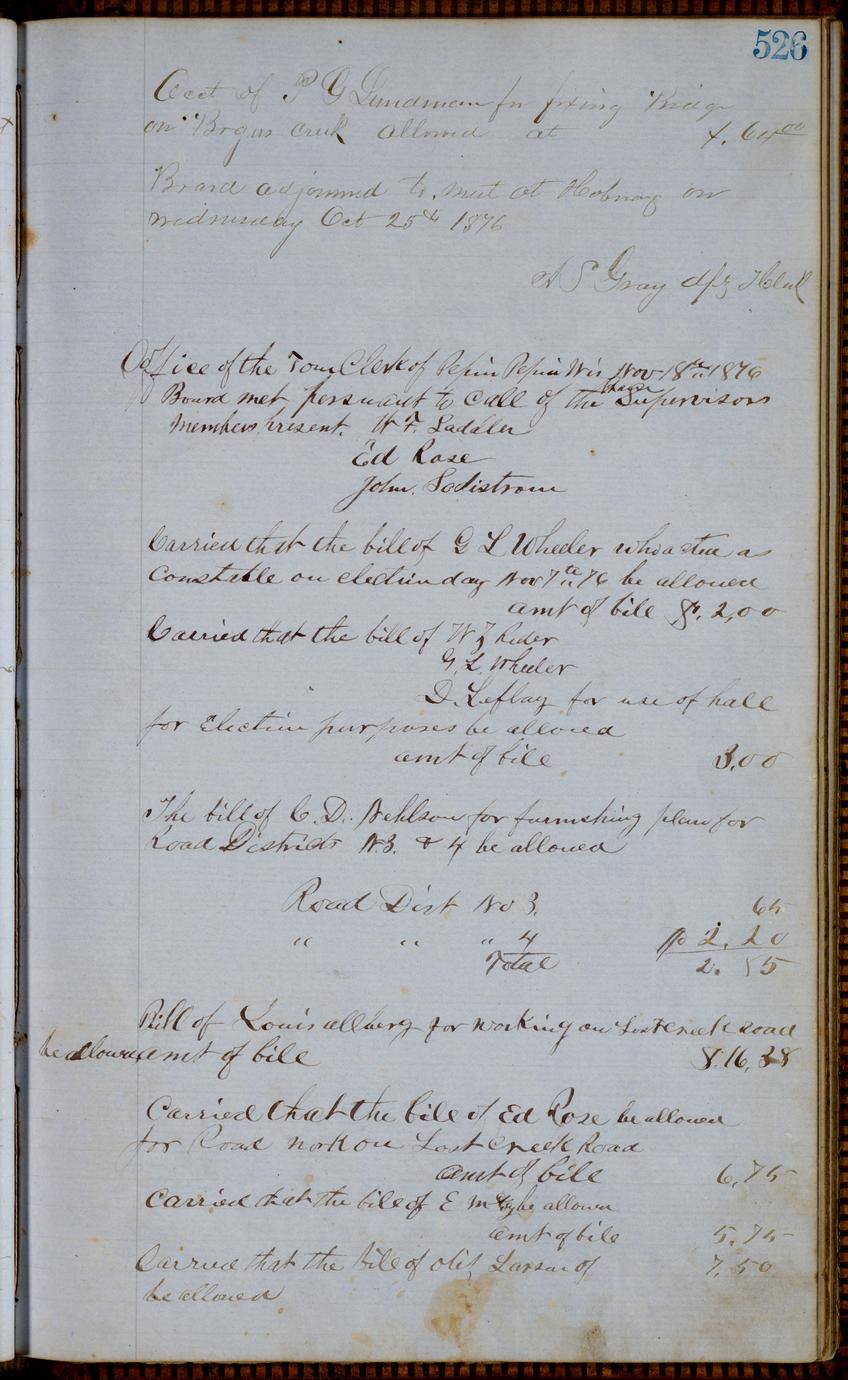 526
Acct of P G Lundman for fixing Bridge
on Bogus creek allowed at $.64.00
Board adjourned to meet at on
wednesday Oct 25th 1876
A S Gray dpy Clerk
Office of the Town Clerk of Pepin Pepin Wis Nov 18th 1876
Board met persuant to call of the Supervisors
Members present. W. F.
Ed Rose
John.
Carried that the bill of G L Wheeler who acted as
Constable on election day Nov 7th 76 be allowed
amt of bile $. 2,00
Carried that the bill of W
G. L. Wheeler
D. for use of hall
for Election purposes be allowed
amt of bile 3.00
The bill of C. D. for furnishing plan for
Road Districts N.3. & 4 be allowed
Road Dist No 3. 65
" " " 4 2.20
Total 2.85
Bill of Louis allberg for working on Lost creek road
be allowed amt of bile $.16,38
Carried that the bile of Ed Rose be allowed
for Road work on Lost Creek Road
amt of bile 6,75
Carried that the bile of E be allowed
amt of bile 5.75
Carried that the bile of Larson of 7.50
be allowed